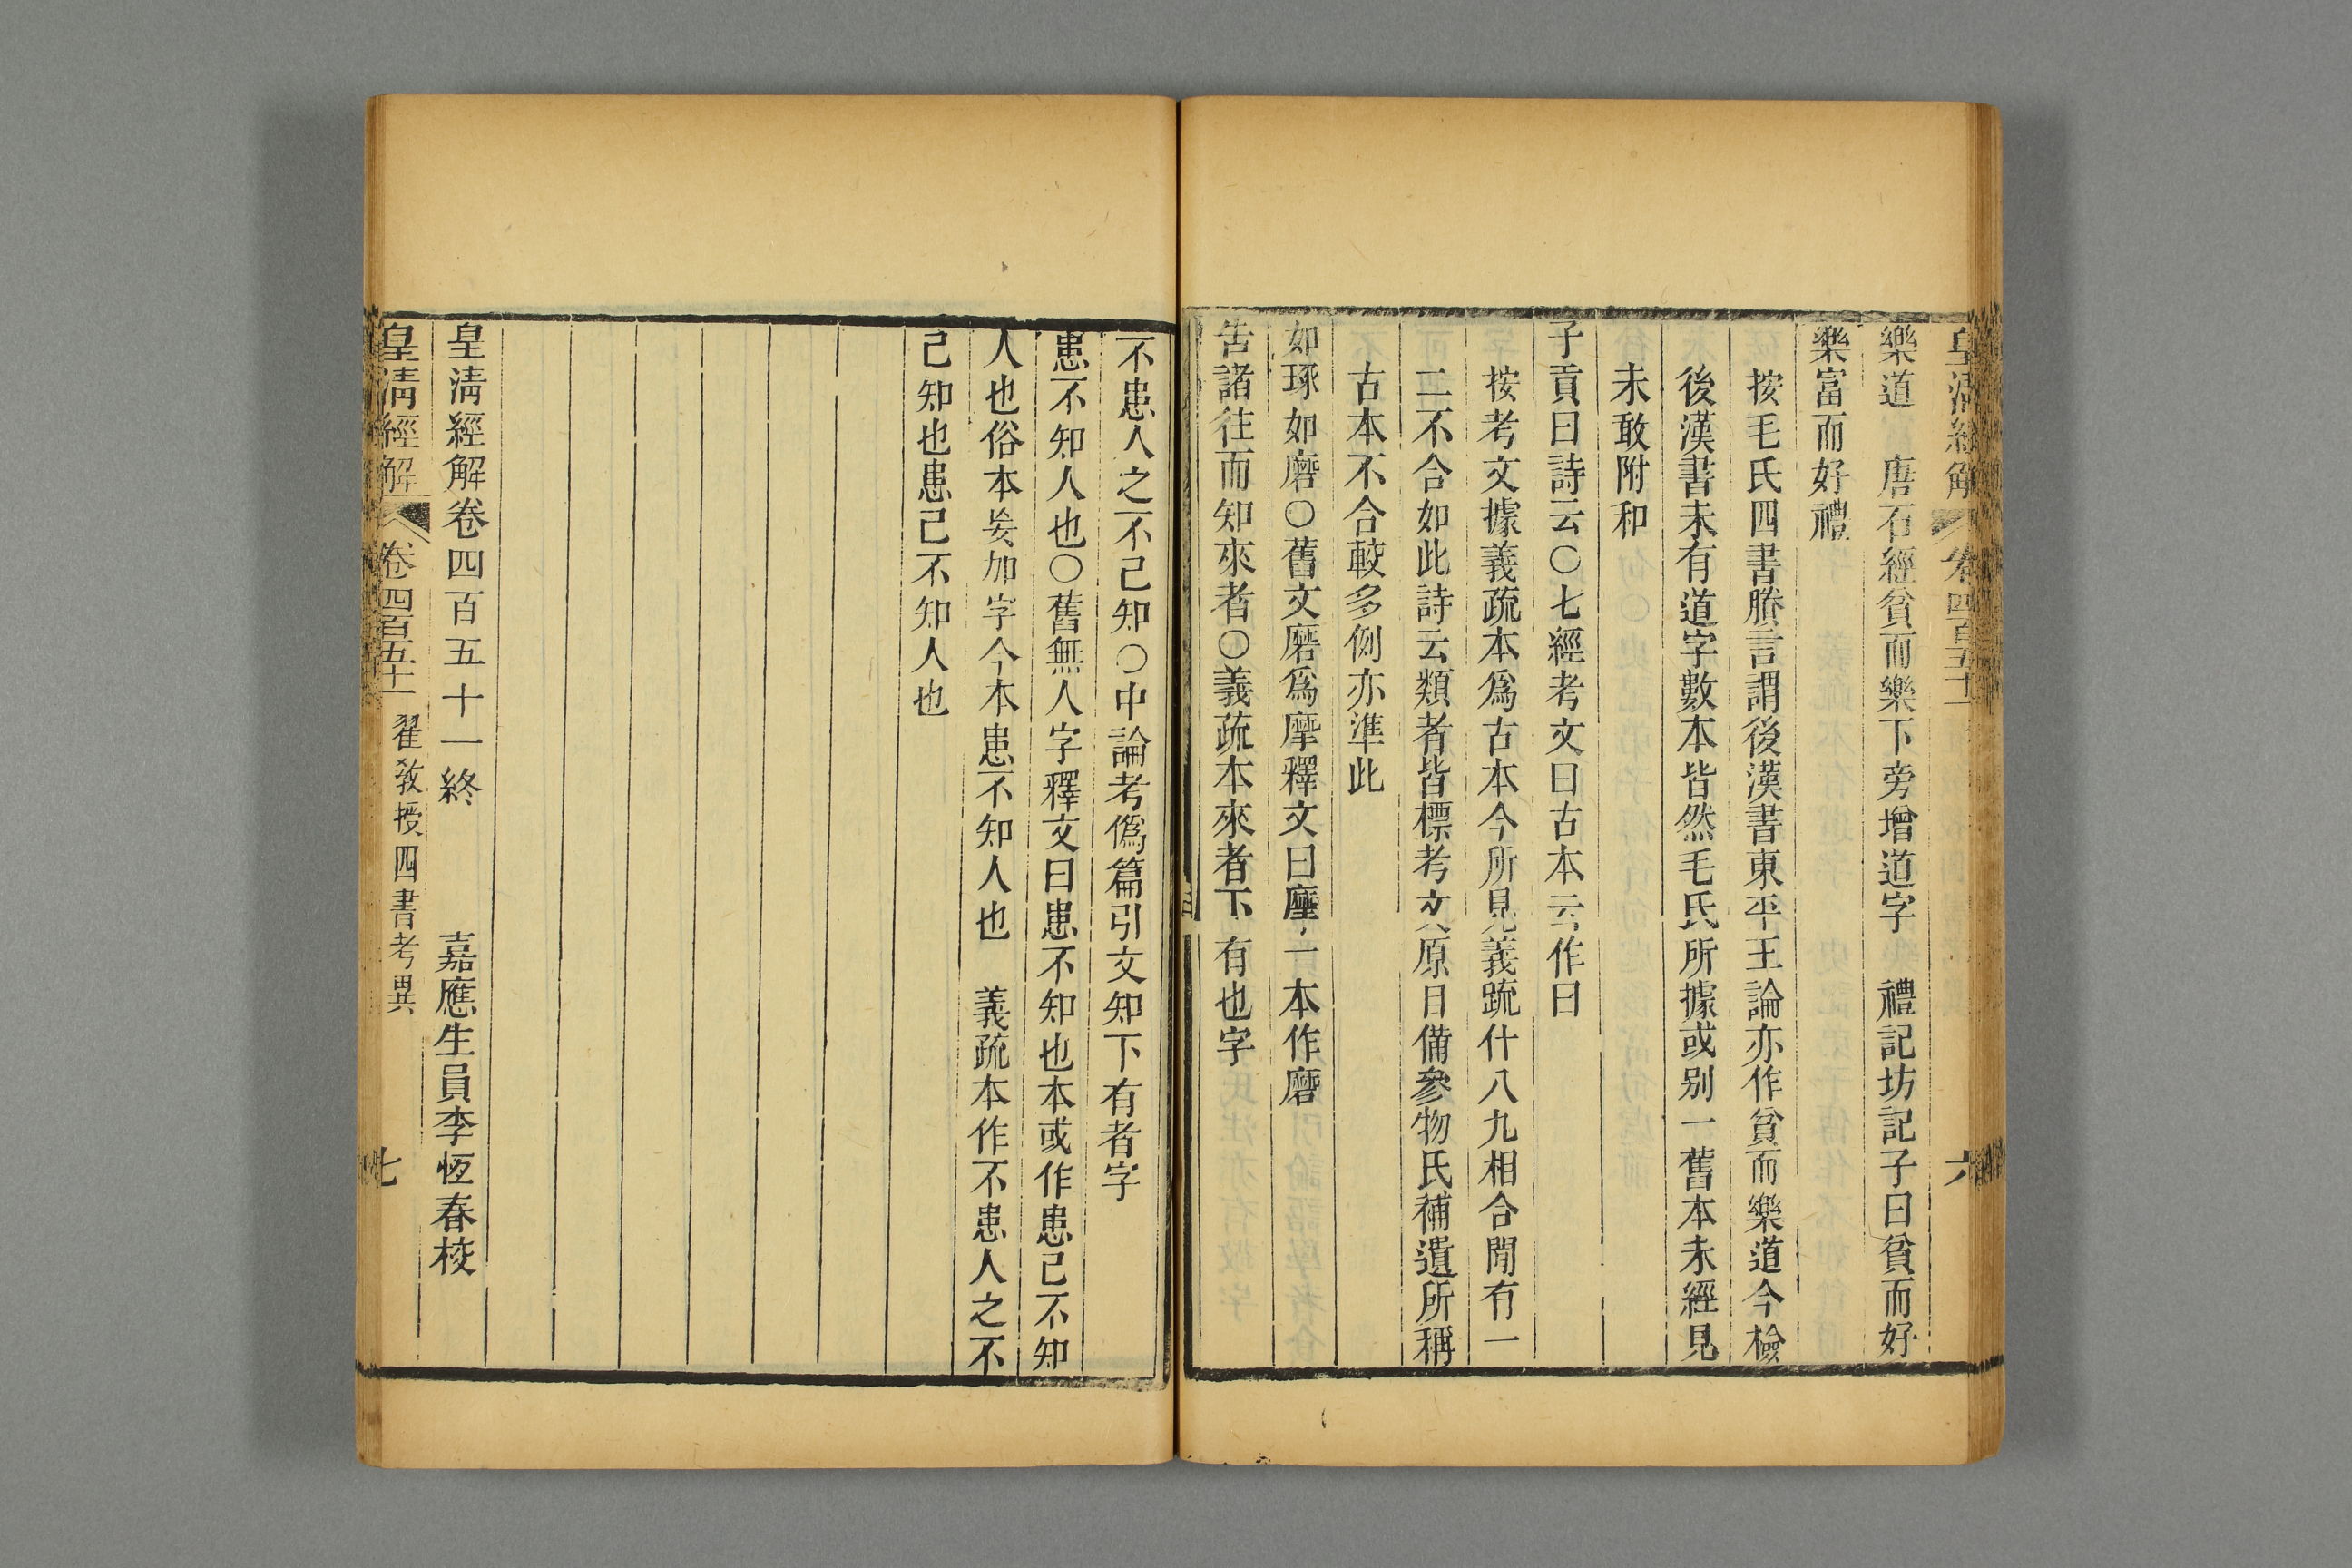 皇清經解 卷四百五十一 六
樂道 唐石經貧而樂下旁增道字 禮記坊記子曰貧而好
樂富而好禮
按毛氏四書賸言謂後漢書東平王論亦作貧而樂道今檢
後漢書未有道字數本皆然毛氏所據或别一舊本未經見
未敢附和
子貢曰詩云○七經考文曰古本云作曰
按考文據義疏本爲古本今所見義疏什八九相合閒有一
二不合如此詩云類者皆標考文原目備參物氏補遺所稱
古本不合較多例亦準此
如琢如磨○舊文磨爲摩釋文曰摩一本作磨
告諸往而知來者○義疏本來者下有也字
不患人之不己知○中論考僞篇引文知下有者字
患不知人也○舊無人字釋文曰患不知也本或作患己不知
人也俗本妄加字今本患不知人也 義疏本作不患人之不
己知也患己不知人也
皇清經解卷四百五十一終 嘉應生員李恆春校
皇清經解 卷四百五十一 翟敎授四書考異 七